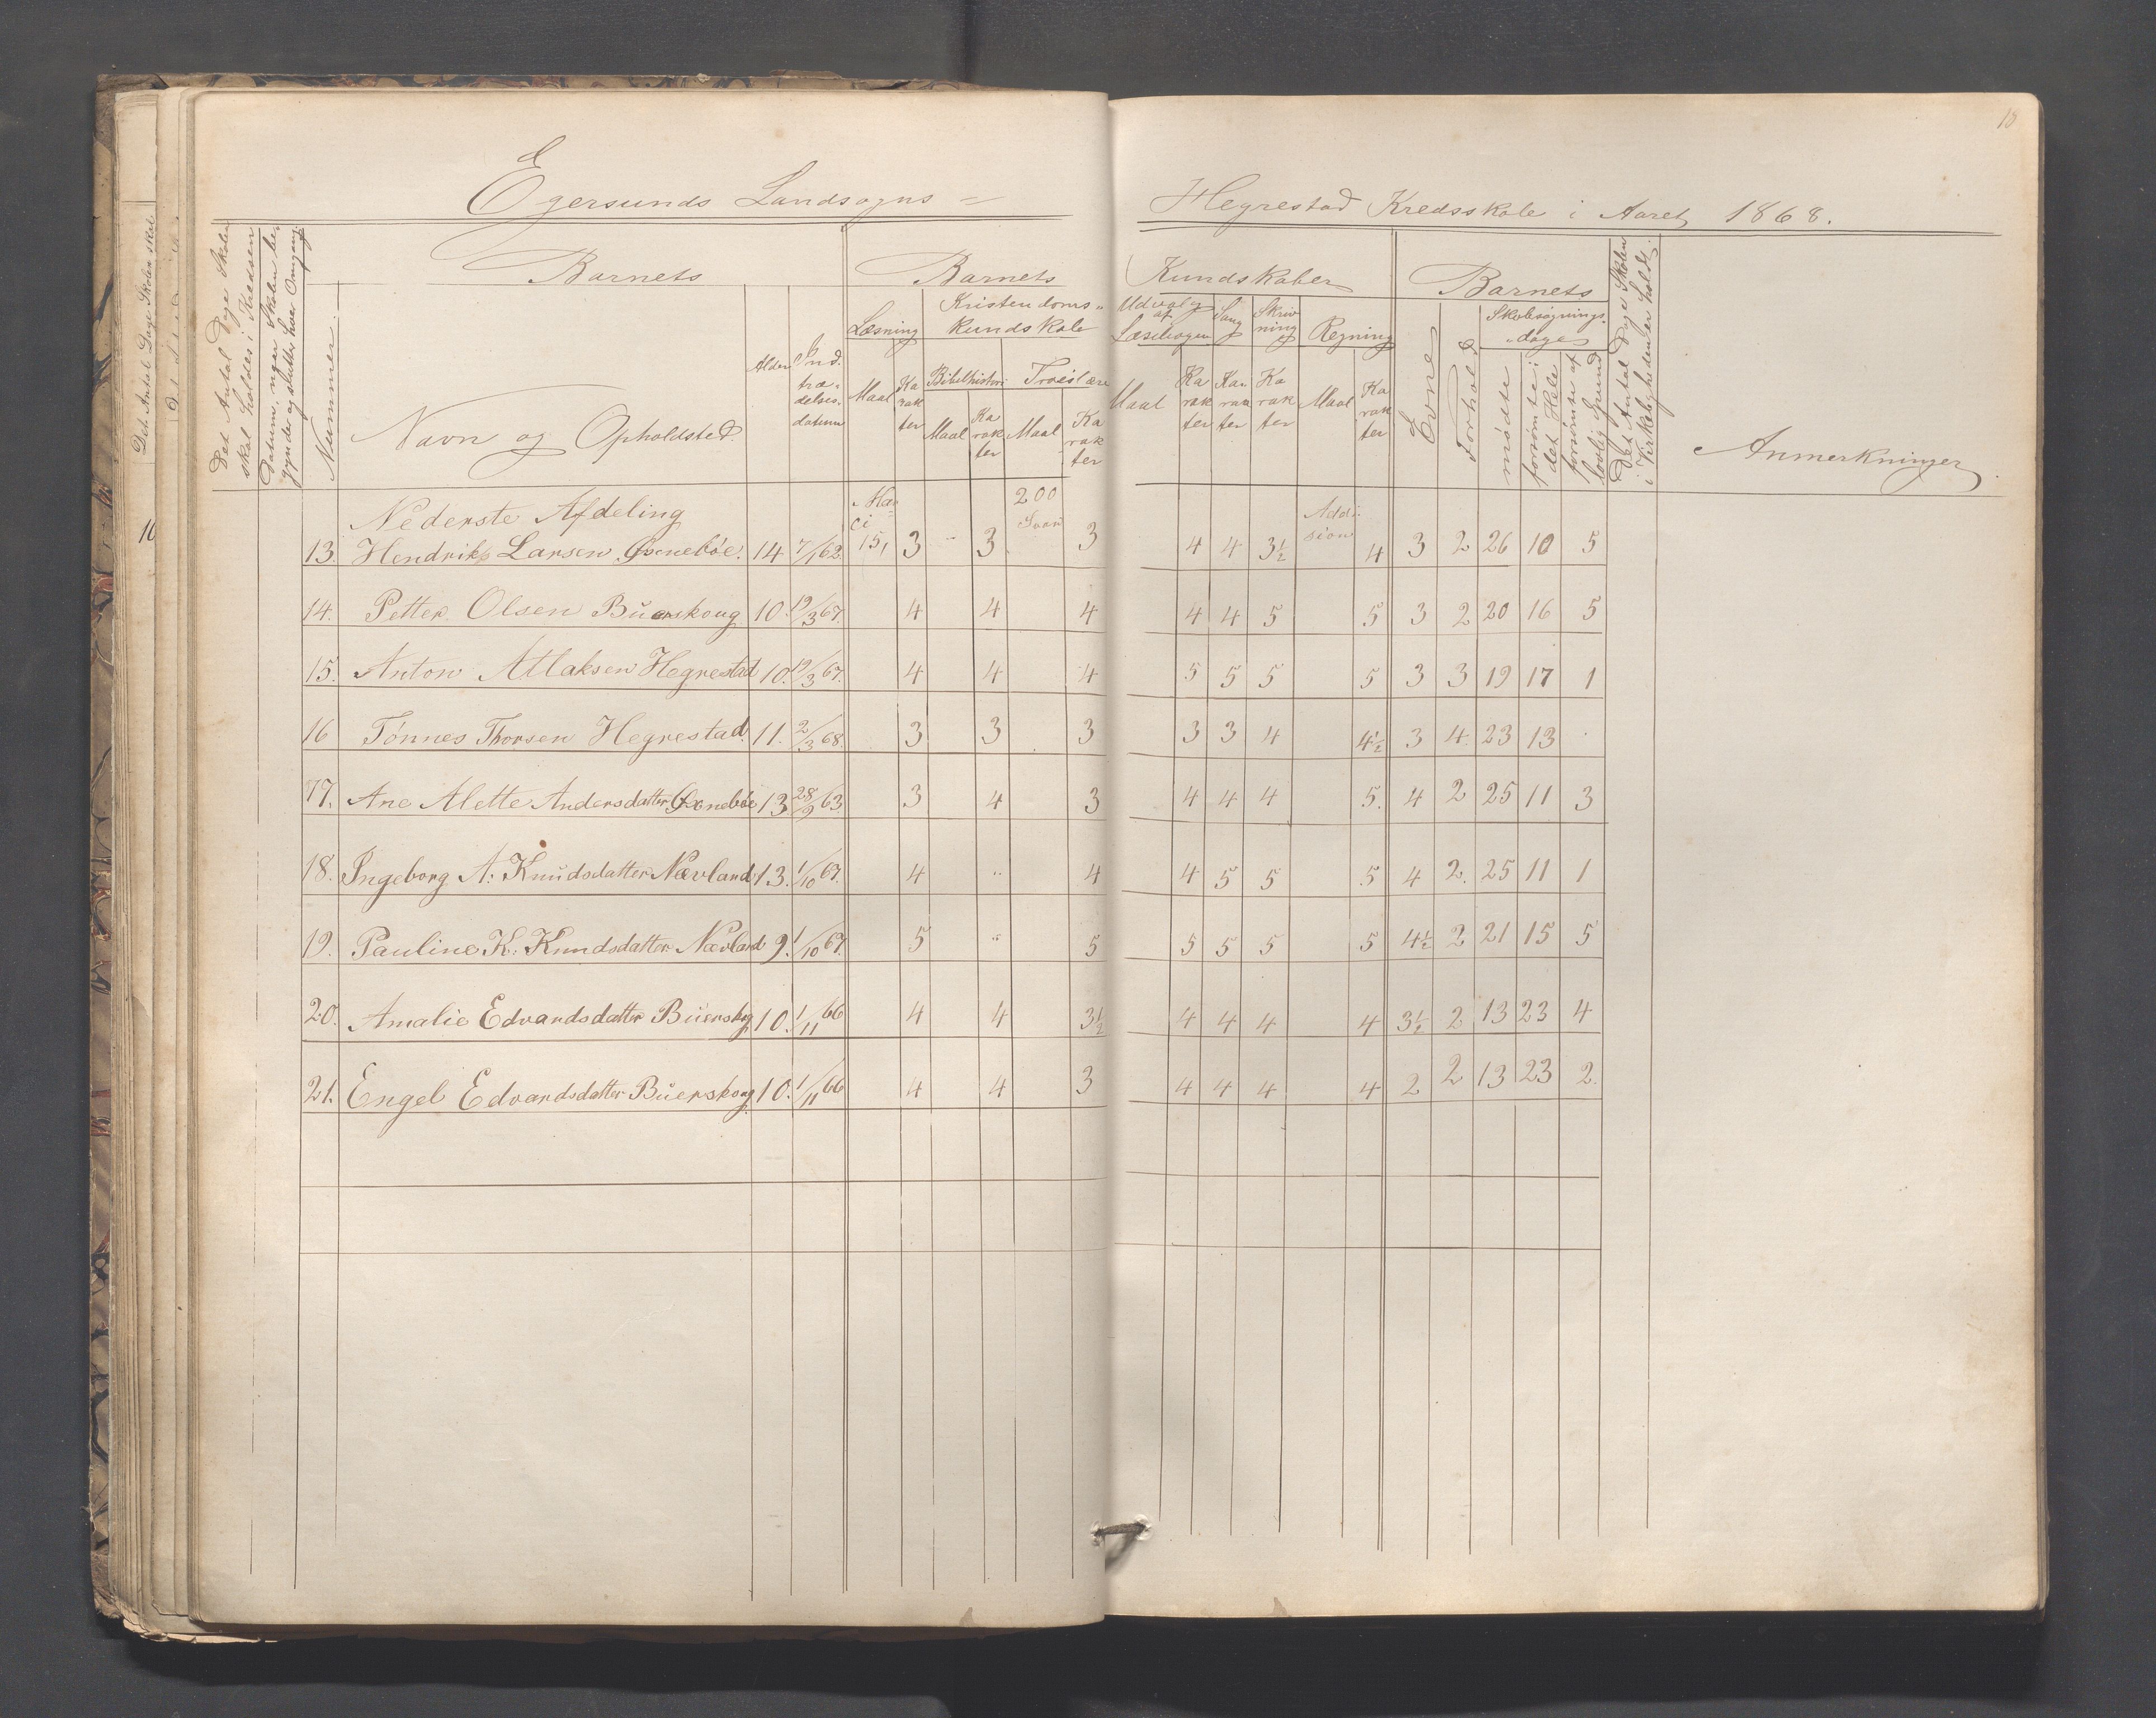 18
Egersunds Landsogns =
Hegrestad Kredsskole i Aaret 1868.
Det Antal Dage Skolen skal holdes i Kredsen
Datum, naar Skolen begynder og slutter hver Omgang.
Nummer.
Barnets
Navn og Opholdsted.
Alder
Indtrædelsesdatum
Barnets
Kundskaber
Læsning
Maal
Karakter
Kristendoms=
kundskab
Bibelhistorie
Maal
Karakter
Troeslære
Maal
Karakter
Udvalg af Læsebogen
Maal
Karakter
Sang
Karakter
Skrivning
Karakter
Regning
Maal
Karakter
Barnets
Evne
Forhold
Skolesøgnings=
dage
mødte
forsømte i det Hele
forsømte af lovlig Grund
Det Antal Dage Skolen i Virkeligheden er holdt.
Anmerkninger
Det Antal Dage Skolen skal
10
Nederste Afdeling
200
Addi-
sion
13. Hendrik Larsen Øxnebøe. 14 7/1 62. 151 3 " 3 3 4 4 3½ 4 3 2 26 10 5
14. Petter Olsen Büerskoug 10. 19/3 67. 4 4 4 4 4 5 5 3 2 20 16 5
15. Anton Atlaksen Hegrestad 10. 19/3 67. 4 4 4 5 5 5 5 3 3 19 17 1
16 Tönnes Thorsen Hegrestad. 11. 2/3 68. 3 3 3 3 3 4 4½ 3 4 23 13 .
17. Ane Alette Andersdatter Øxnebøe 13 28/9 63. 3 4 3 4 4 4 5. 4 2 25 11 3
18. Ingeborg A: Knudsdatter Nævland 13. 1/10 67. 4 " 4 4 5 5 5 4 2. 25 11 1
19. Pauline K. Knudsdatter Nævland 9. 1/10 67. 5 " 5 5 5 5 5 4½ 2 21 15 5
20. Amalie Edvardsdatter Büerskog 10. 1/11 66 4 4 3½ 4 4 4 4 3½ 2 13 23 4
21. Engel Edvardsdatter Büerskoug 10. 1/11 66 4 4 3 4 4 4 4 2 2 13 23 2.